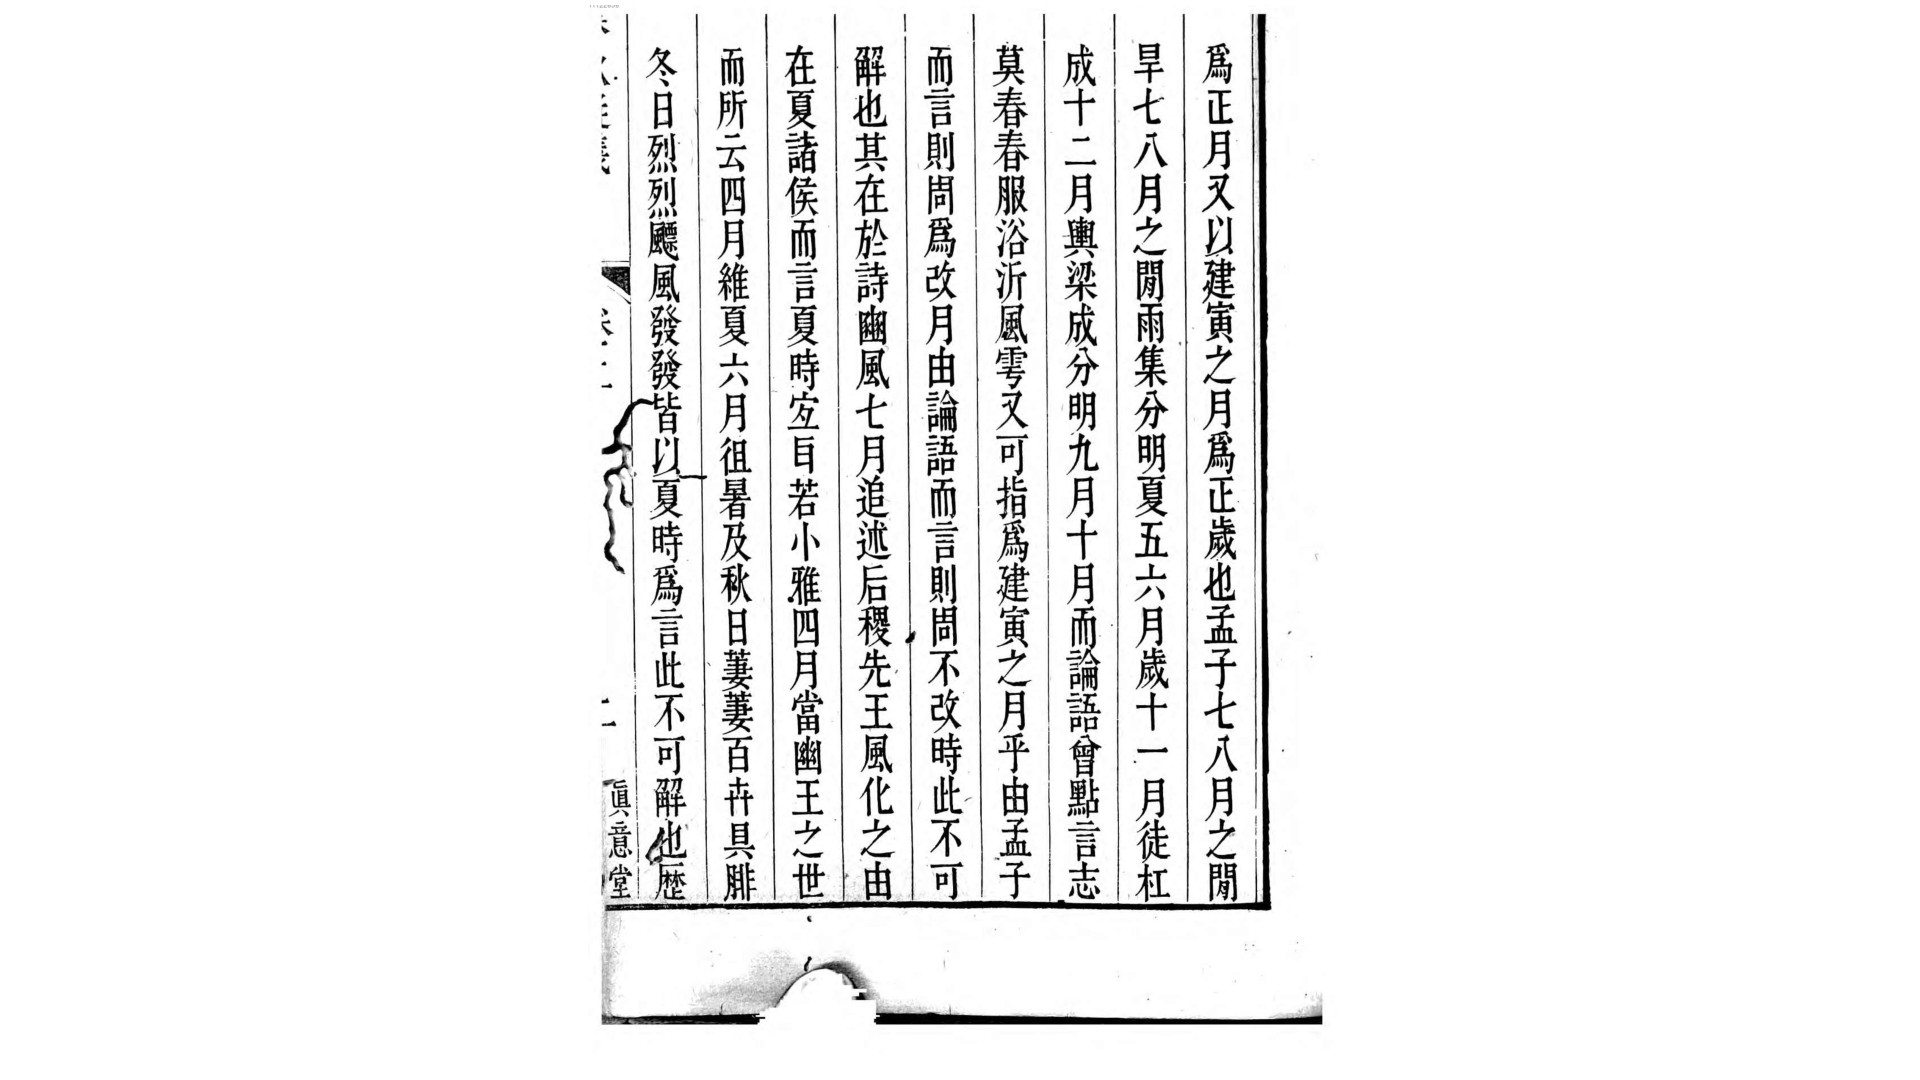 爲正月又以建寅之月爲正歲也孟子七八月之閒
旱七八月之閒雨集分明夏五六月歲十一月徒杠
成十二月輿梁成分明九月十月而論語曾點言志
莫春春服浴沂風雩又可指爲建寅之月乎由孟子
而言則周爲改月由論語而言則周不改時此不可
解也其在於詩豳風七月追述后稷先王風化之由
在夏諸侯而言夏時宐㠯若小雅四月當幽王之世
而所云四月維夏六月徂暑及秋日萋萋百卉具腓
冬日烈烈飄風發發皆以夏時爲言此不可解也歷
眞意堂